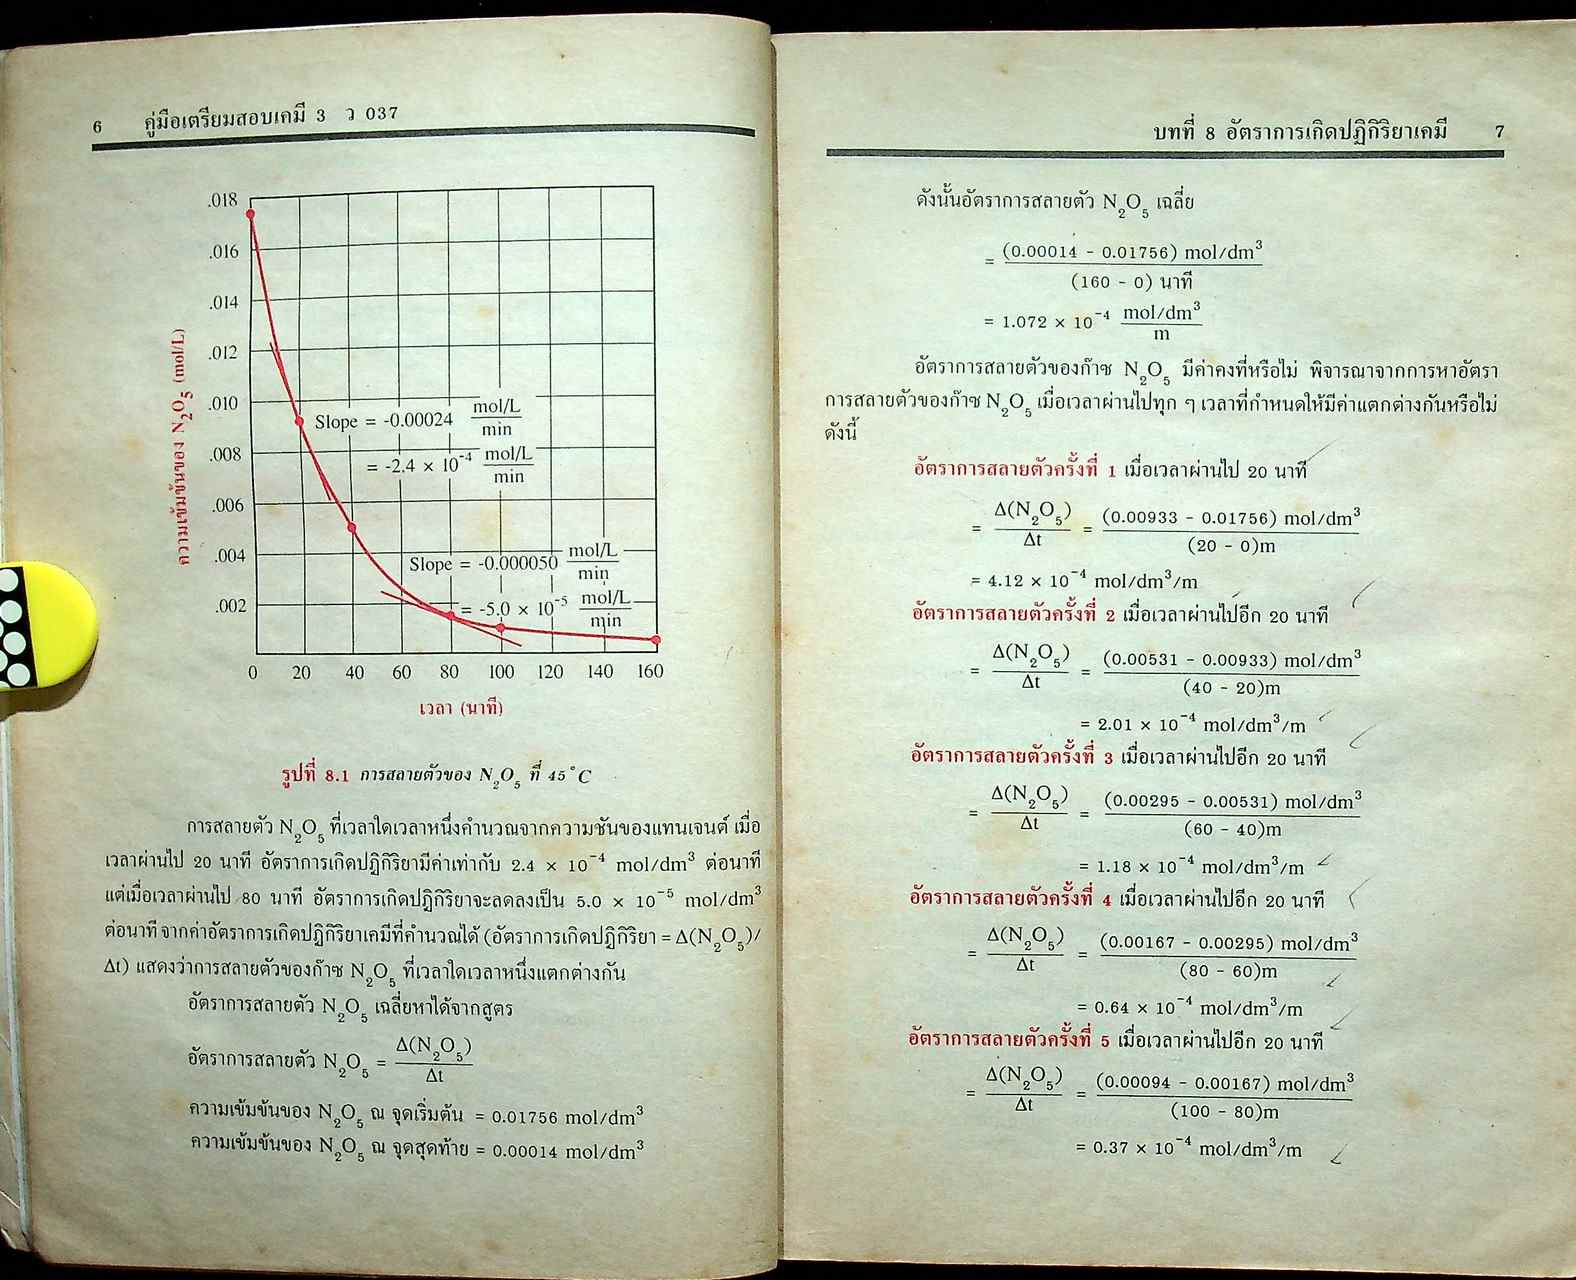 6 คู่มือเตรียมสอบเคมี 3 ว 037
.018
.016
.014
.012
.010
.008
.006
.004
.002
ความเข้มข้นของ N₂O₅ (mol/L)
Slope = -0.00024 mol/L / min
= -2.4 × 10⁻⁴ mol/L / min
Slope = -0.000050 mol/L / min
= -5.0 × 10⁻⁵ mol/L / min
0 20 40 60 80 100 120 140 160
เวลา (นาที)
รูปที่ 8.1 การสลายตัวของ N₂O₅ ที่ 45°C
การสลายตัว N₂O₅ ที่เวลาใดเวลาหนึ่งคำนวณจากความชันของแทนเจนต์ เมื่อ
เวลาผ่านไป 20 นาที อัตราการเกิดปฏิกิริยามีค่าเท่ากับ 2.4 × 10⁻⁴ mol/dm³ ต่อนาที
แต่เมื่อเวลาผ่านไป 80 นาที อัตราการเกิดปฏิกิริยาจะลดลงเป็น 5.0 × 10⁻⁵ mol/dm³
ต่อนาที จากค่าอัตราการเกิดปฏิกิริยาเคมีที่คำนวณได้ (อัตราการเกิดปฏิกิริยา = Δ(N₂O₅)/
Δt) แสดงว่าการสลายตัวของก๊าซ N₂O₅ ที่เวลาใดเวลาหนึ่งแตกต่างกัน
อัตราการสลายตัว N₂O₅ เฉลี่ยหาได้จากสูตร
อัตราการสลายตัว N₂O₅ = Δ(N₂O₅) / Δt
ความเข้มข้นของ N₂O₅ ณ จุดเริ่มต้น = 0.01756 mol/dm³
ความเข้มข้นของ N₂O₅ ณ จุดสุดท้าย = 0.00014 mol/dm³
บทที่ 8 อัตราการเกิดปฏิกิริยาเคมี 7
ดังนั้นอัตราการสลายตัว N₂O₅ เฉลี่ย
= (0.00014 - 0.01756) mol/dm³ / (160 - 0) นาที
= 1.072 × 10⁻⁴ mol/dm³ / m
อัตราการสลายตัวของก๊าซ N₂O₅ มีค่าคงที่หรือไม่ พิจารณาจากการหาอัตรา
การสลายตัวของก๊าซ N₂O₅ เมื่อเวลาผ่านไปทุก ๆ เวลาที่กำหนดให้มีค่าแตกต่างกันหรือไม่
ดังนี้
อัตราการสลายตัวครั้งที่ 1 เมื่อเวลาผ่านไป 20 นาที
= Δ(N₂O₅) / Δt = (0.00933 - 0.01756) mol/dm³ / (20 - 0)m
= 4.12 × 10⁻⁴ mol/dm³/m
อัตราการสลายตัวครั้งที่ 2 เมื่อเวลาผ่านไปอีก 20 นาที
= Δ(N₂O₅) / Δt = (0.00531 - 0.00933) mol/dm³ / (40 - 20)m
= 2.01 × 10⁻⁴ mol/dm³/m
อัตราการสลายตัวครั้งที่ 3 เมื่อเวลาผ่านไปอีก 20 นาที
= Δ(N₂O₅) / Δt = (0.00295 - 0.00531) mol/dm³ / (60 - 40)m
= 1.18 × 10⁻⁴ mol/dm³/m
อัตราการสลายตัวครั้งที่ 4 เมื่อเวลาผ่านไปอีก 20 นาที
= Δ(N₂O₅) / Δt = (0.00167 - 0.00295) mol/dm³ / (80 - 60)m
= 0.64 × 10⁻⁴ mol/dm³/m
อัตราการสลายตัวครั้งที่ 5 เมื่อเวลาผ่านไปอีก 20 นาที
= Δ(N₂O₅) / Δt = (0.00094 - 0.00167) mol/dm³ / (100 - 80)m
= 0.37 × 10⁻⁴ mol/dm³/m